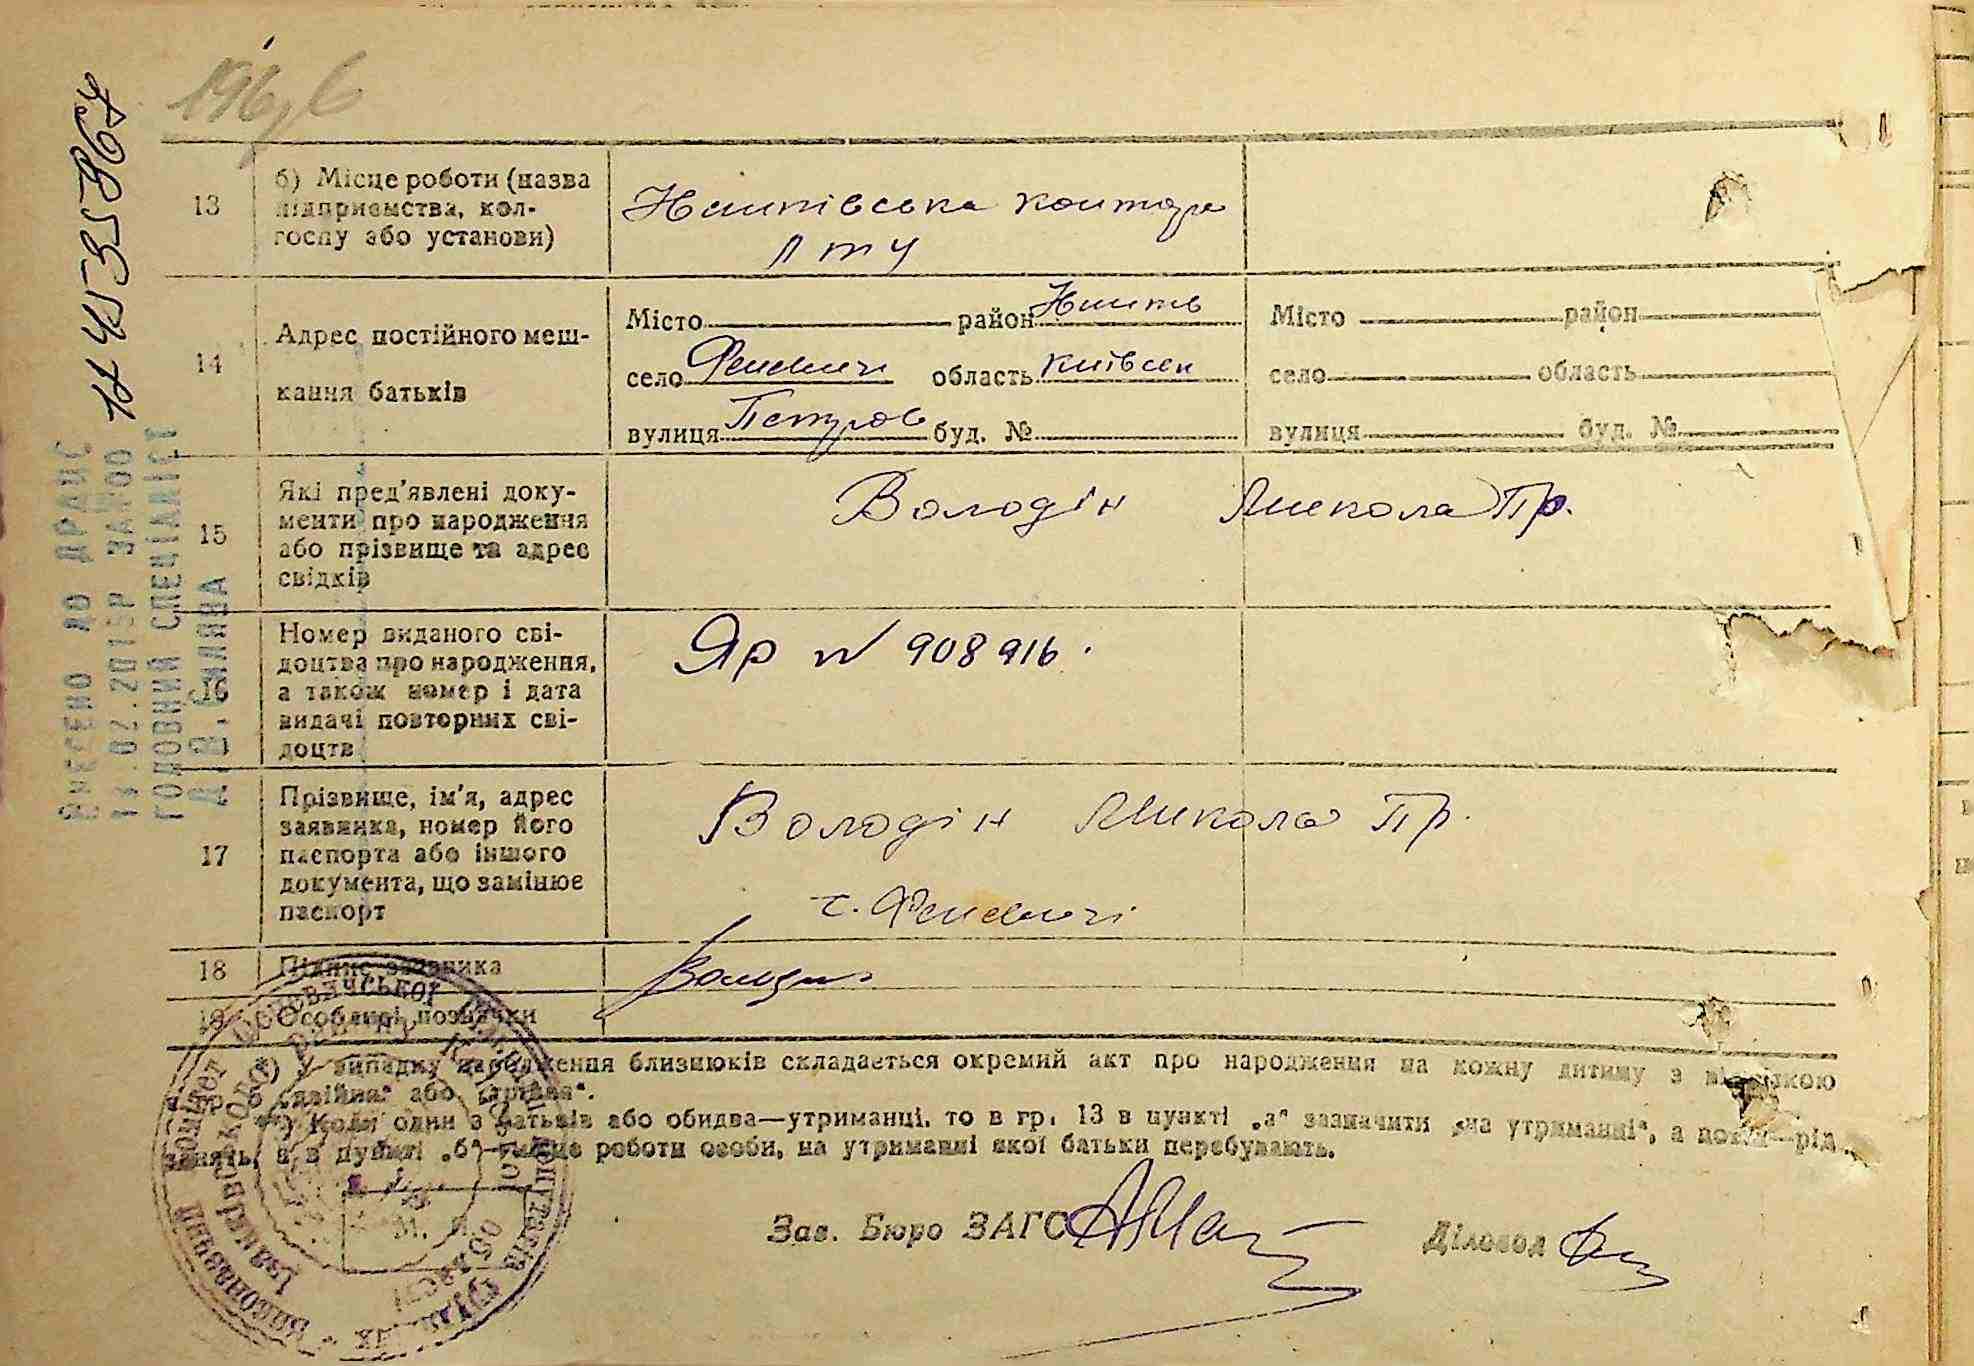 196, 6
13
б) Місце роботи (назва
підприємства, кол-
госпу або установи)
контора
ЛТУ
14
Адрес постійного меш-
кання батьків
Місто район
село Феневичі область Київськ
вулиця Петров буд. №
Місто район
село область
вулиця буд. №
15
Які пред'явлені доку-
менти про народження
або прізвище та адрес
свідків
Володін Микола Пр.
16
Номер виданого сві-
доцтва про народження,
а також номер і дата
видачі повторних сві-
доцтв
ЯР № 908916.
17
Прізвище, ім'я, адрес
заявника, номер його
паспорта або іншого
документа, що замінює
паспорт
Володін Микола Пр.
с. Феневичі
18
Підпис заявника
19
Особливі позначки
*) У випадку народження близнюків складається окремий акт про народження на кожну дитину з відміткою
„двійня“ або „трійня“.
Коли один з батьків або обидва—утриманці, то в гр. 13 в пункті „а“ зазначити „на утриманні“, а потім—рід
занять, а в пункті „б“—місце роботи особи, на утриманні якої батьки перебувають.
М. П.
Зав. Бюро ЗАГС
Діловод
ВНЕСЕНО ДО ДРАЦС
2015Р
ГОЛОВНИЙ СПЕЦІАЛІСТ